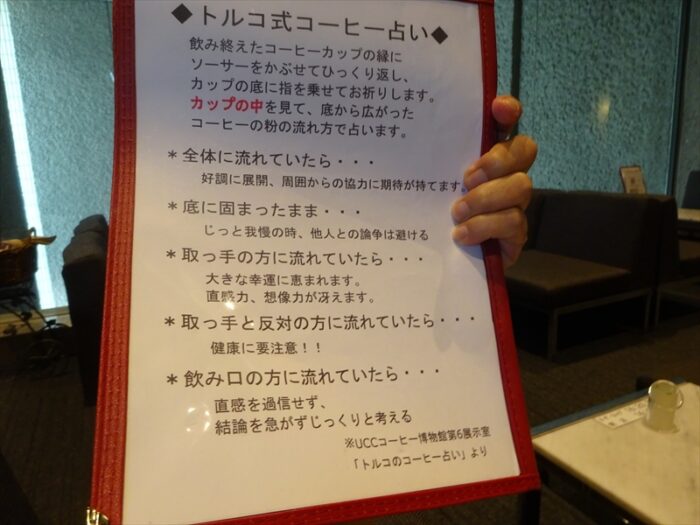 ◆トルコ式コーヒー占い◆
飲み終えたコーヒーカップの縁に
ソーサーをかぶせてひっくり返し、
カップの底に指を乗せてお祈りします。
カップの中を見て、底から広がった
コーヒーの粉の流れ方で占います。
＊全体に流れていたら・・・
好調に展開、周囲からの協力に期待が持てます。
＊底に固まったまま・・・
じっと我慢の時、他人との論争は避ける
＊取っ手の方に流れていたら・・・
大きな幸運に恵まれます。
直感力、想像力が冴えます。
＊取っ手と反対の方に流れていたら・・・
健康に要注意！！
＊飲み口の方に流れていたら・・・
直感を過信せず、
結論を急がずじっくりと考える
※UCCコーヒー博物館第6展示室
「トルコのコーヒー占い」より